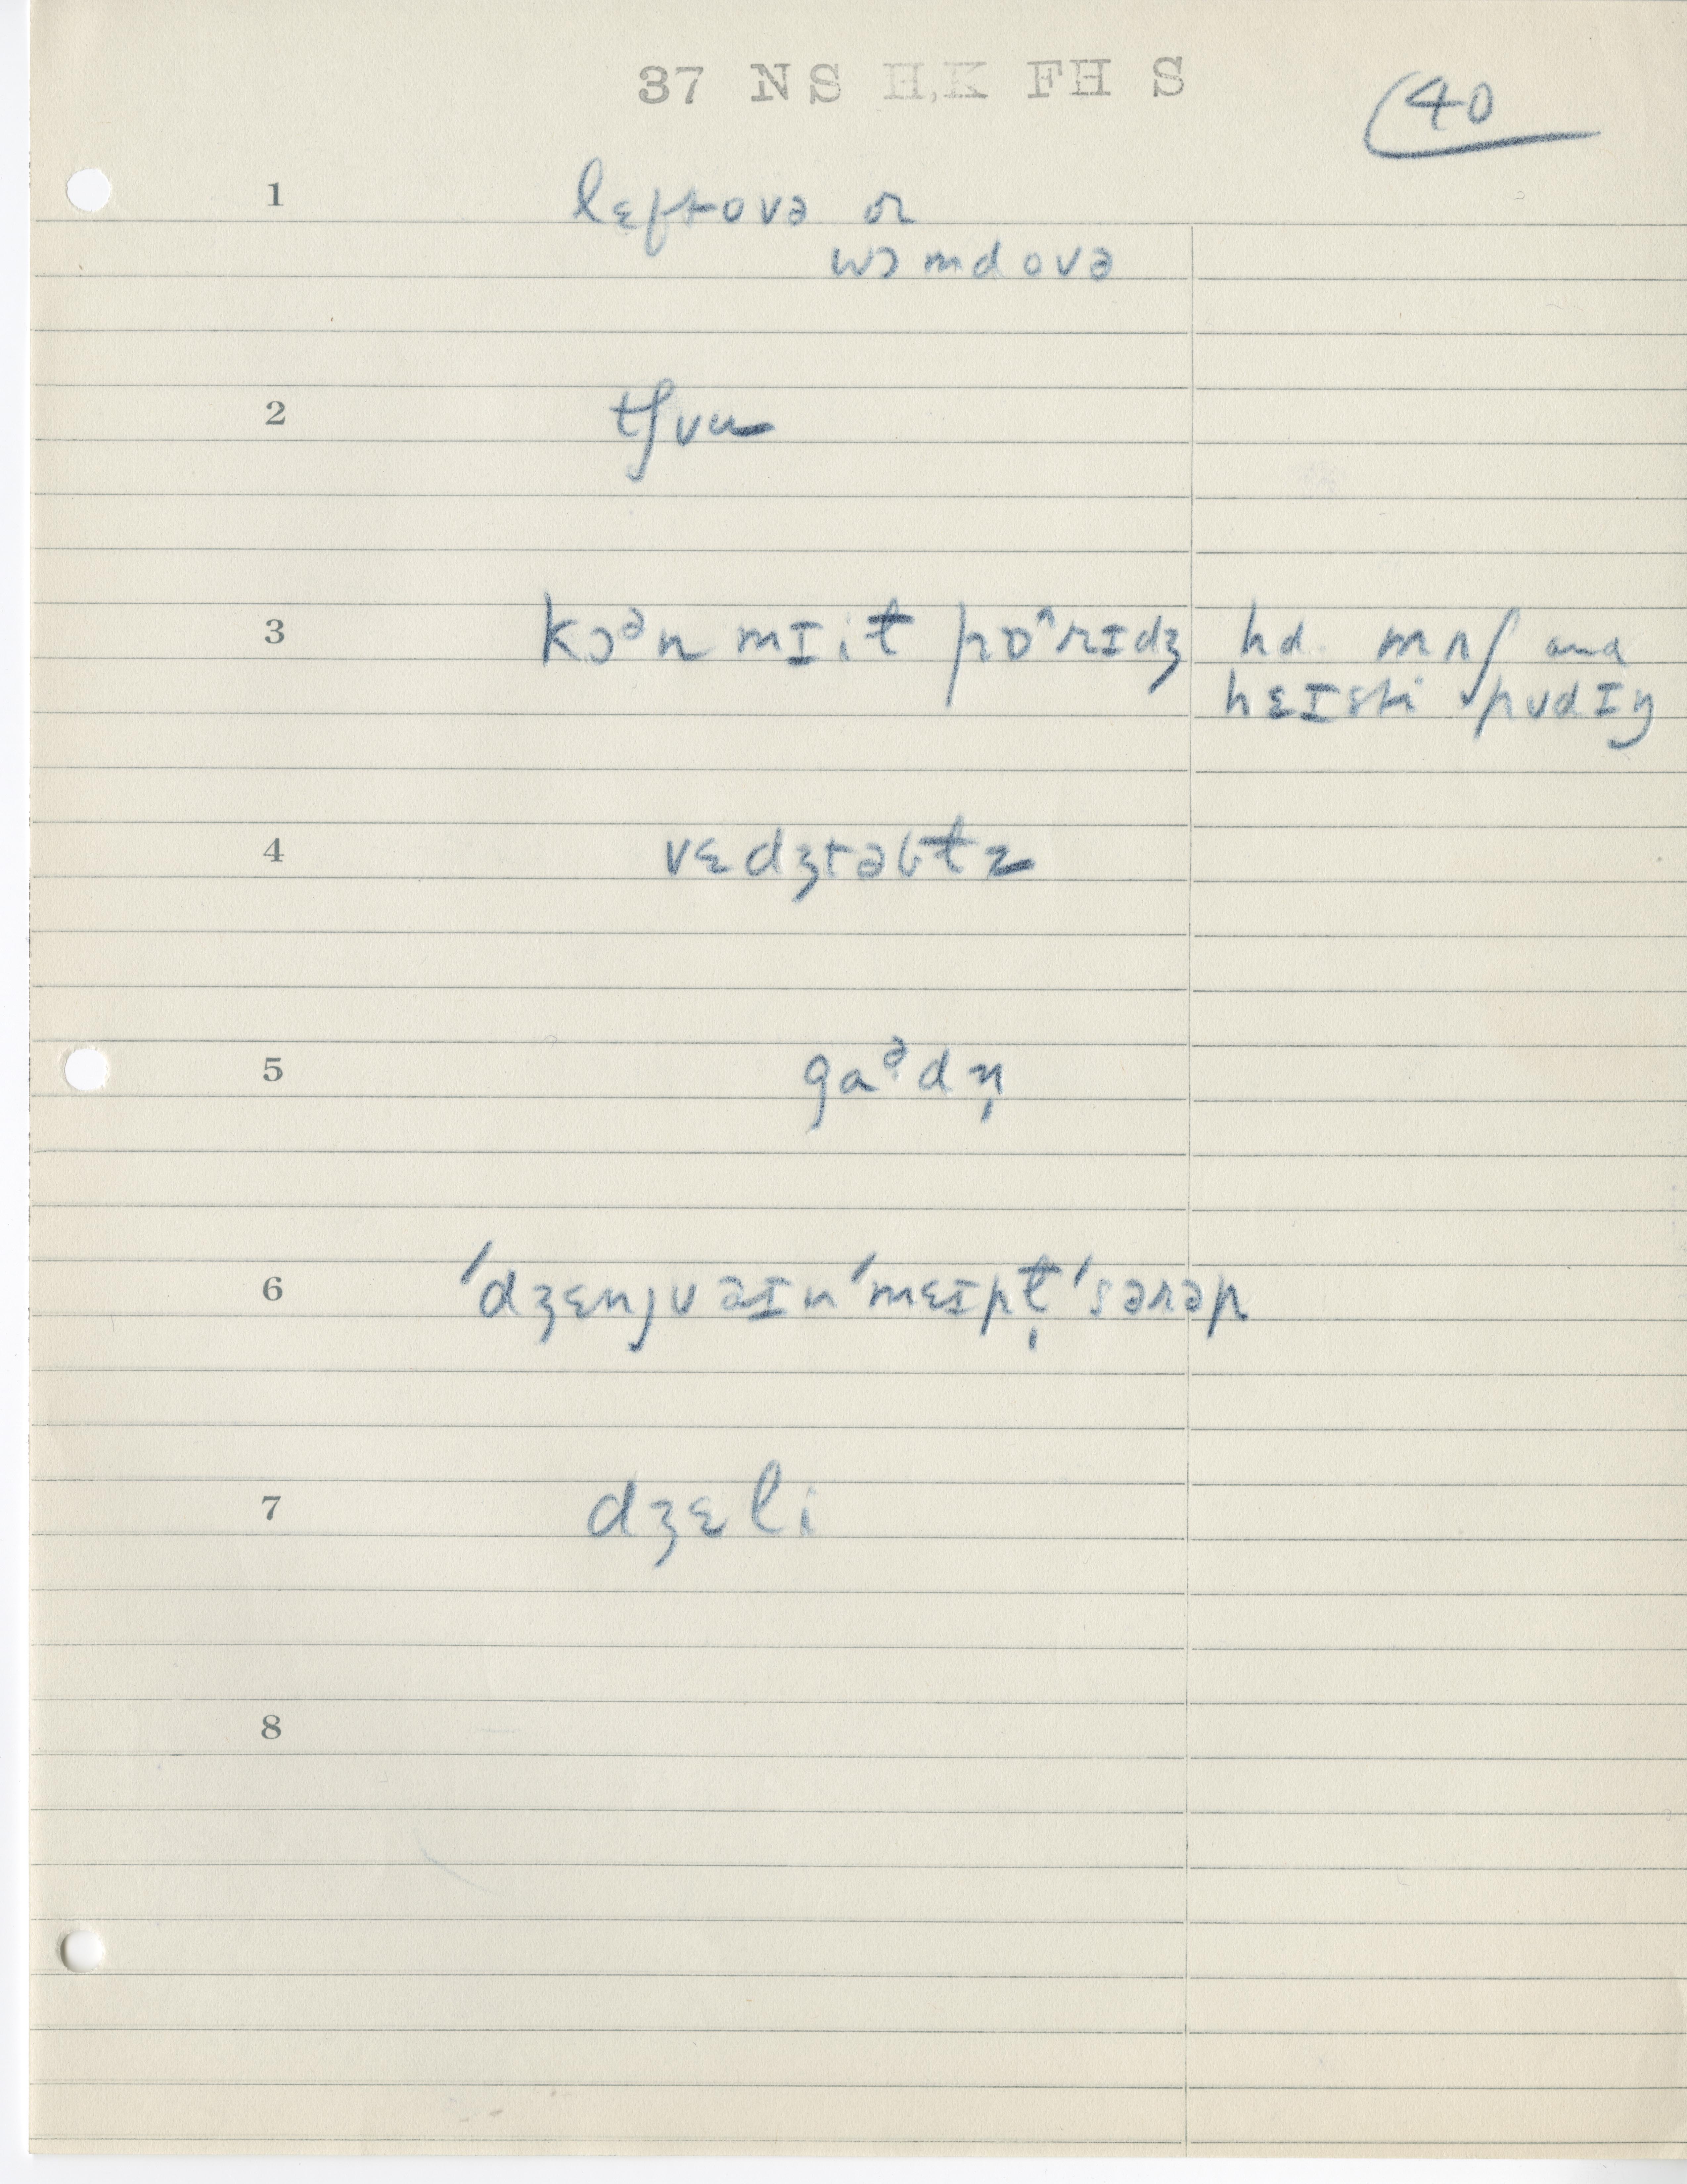 37 NS H,K FH S
40
1 lɛftovə or
wɔmdovə
2 tʃuu
3 kɔᵊn mɪit pɒ^rɪdʒ hd. mʌʃ and
hɛɪsti pudɪŋ
4 vɛdʒtəbtz
5 gaᵊdn̩
6 'dʒɛnjuəɪn'mɛɪpt̩'sərəp
7 dʒɛli
8